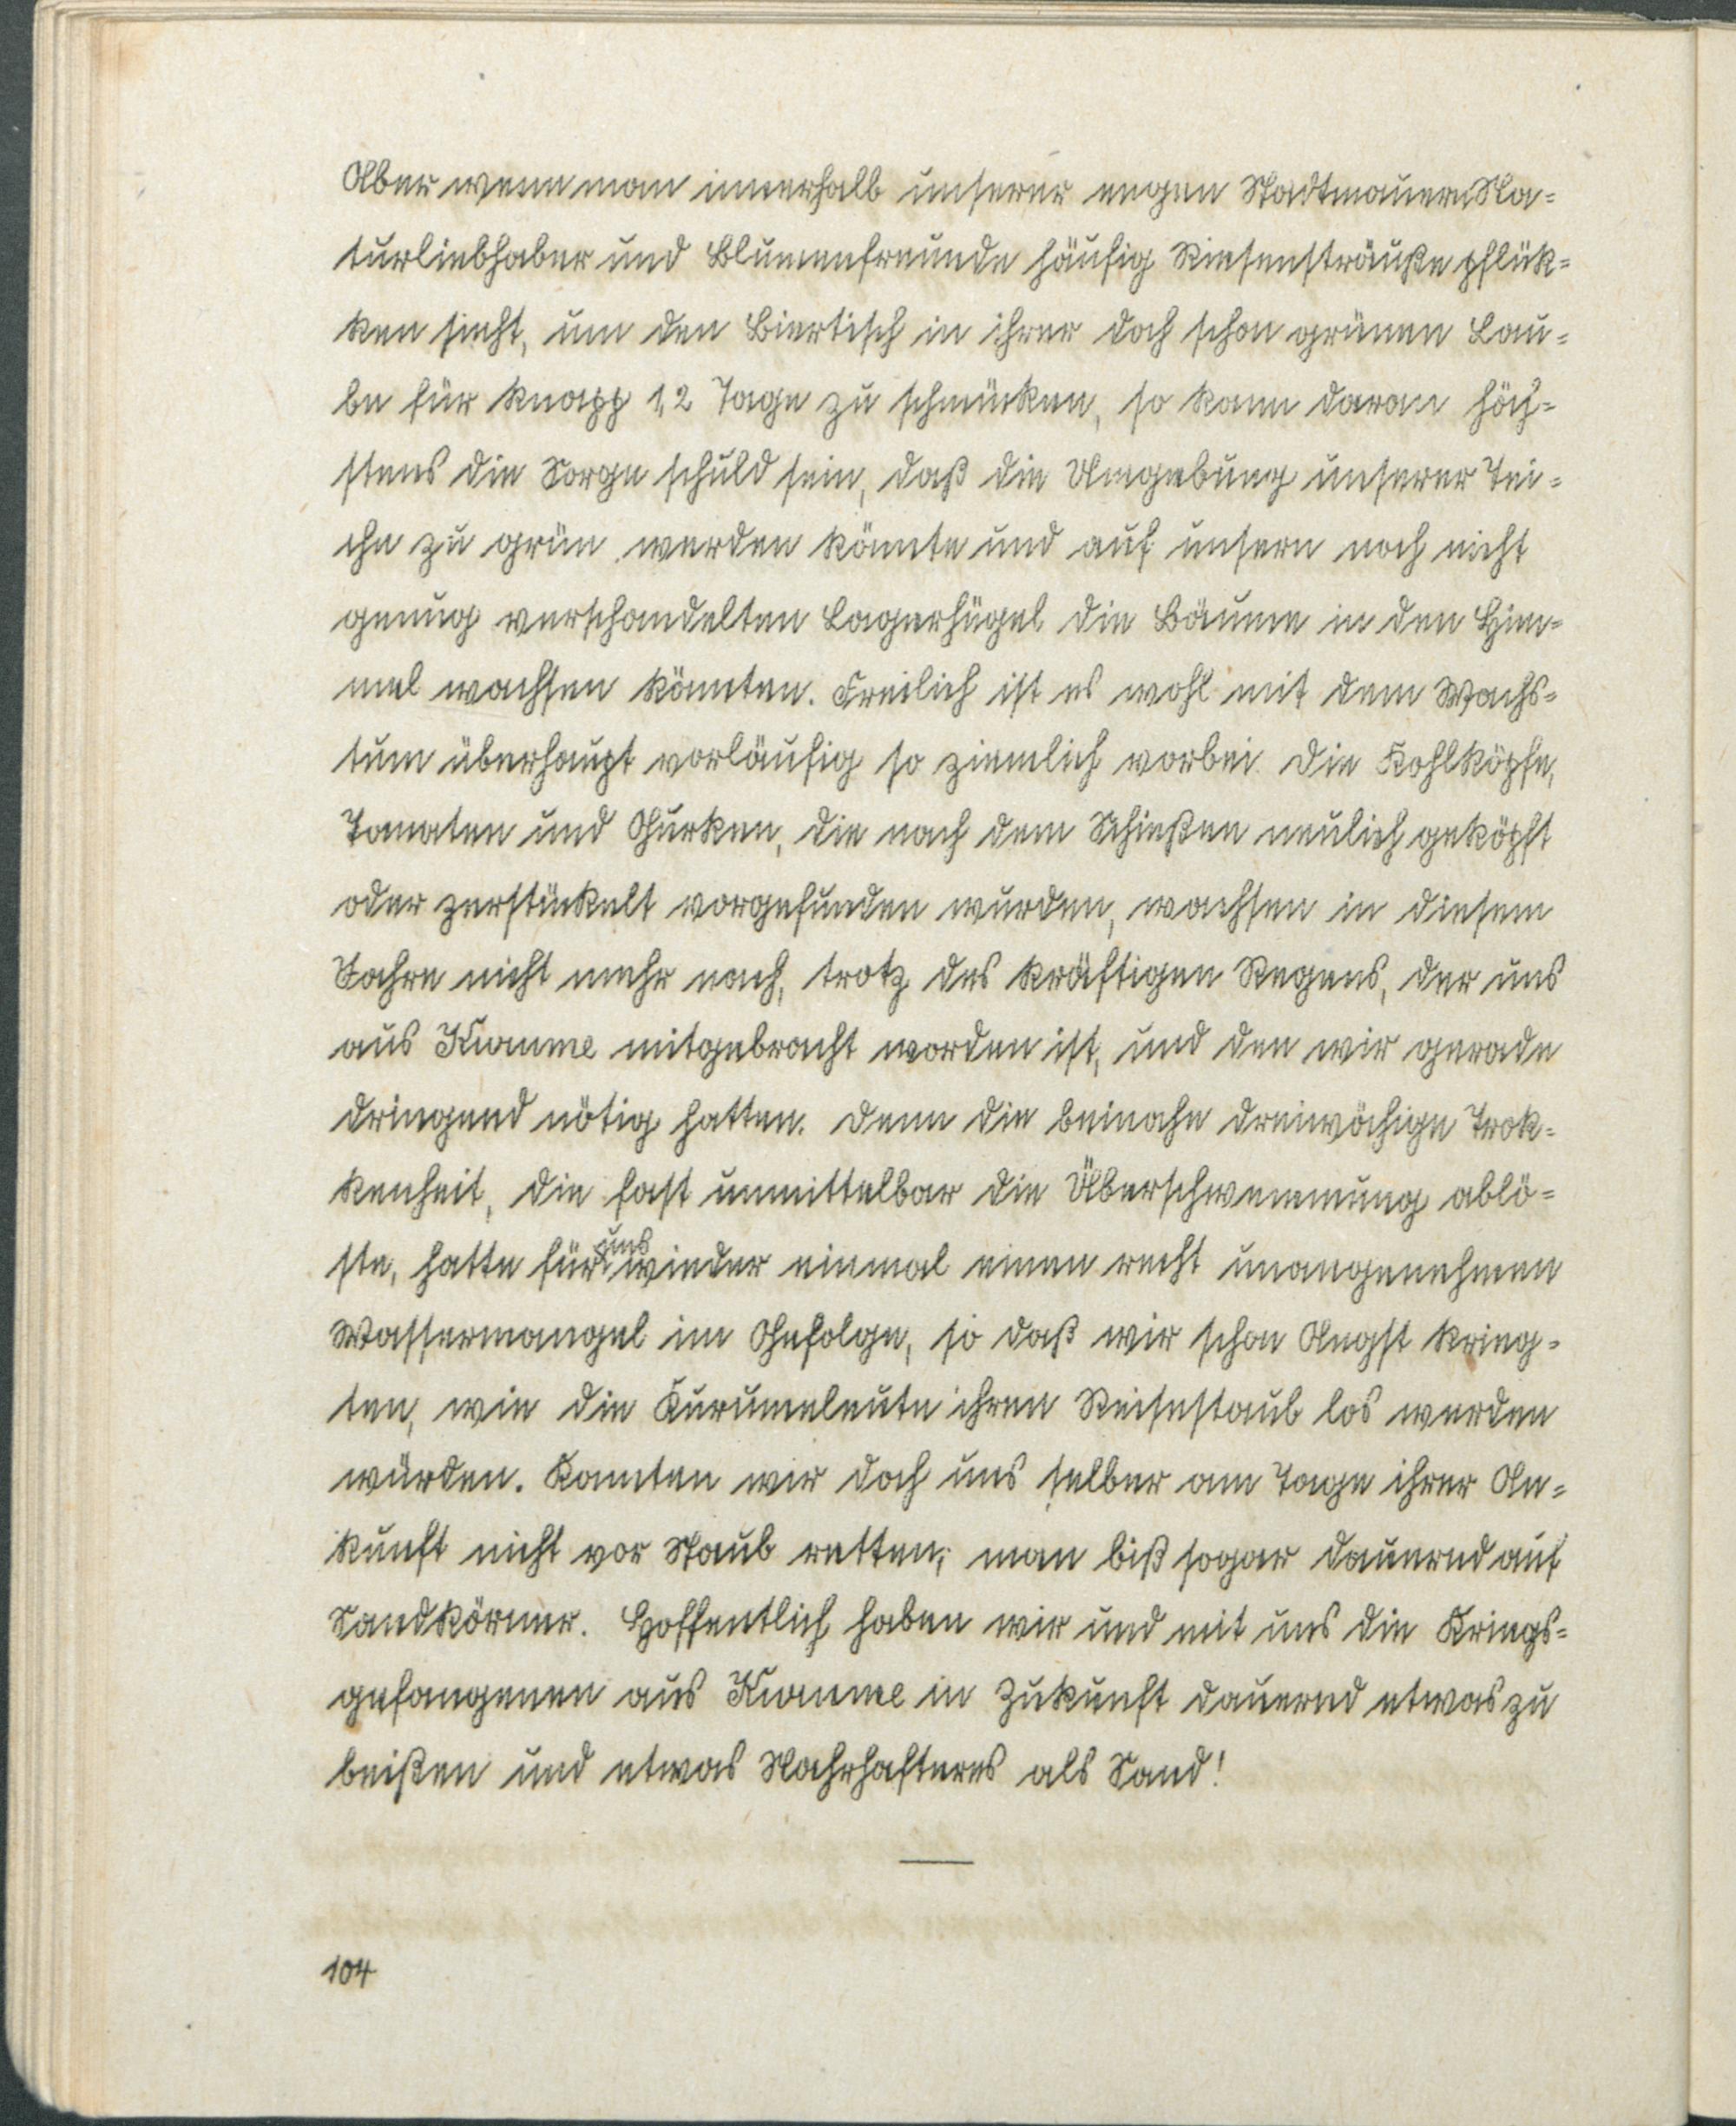 Aber wenn man innerhalb unserer engen Stadtmauern Na=
turliebhaber und Blumenfreunde häufig Riesensträuße pflük=
ken sieht, um den Biertisch in ihrer doch schon grünen Lau=
be für knapp 1,2 Tage zu schmücken, so kann daran höch=
stens die Sorge schuld sein, daß die Umgebung unserer Tei=
che zu grün werden könnte und auf unsern noch nicht
genug verschandelten Lagerhügel die Bäume in den Him=
mel wachsen könnten. Freilich ist es wohl mit dem Wachs=
tum überhaupt vorläufig so ziemlich vorbei. Die Kohlköpfe,
Tomaten und Gurken, die nach dem Schießen neulich geköpft
oder zerstückelt vorgefunden wurden, wachsen in diesem
Jahre nicht mehr nach, trotz des kräftigen Regens, der uns
aus Kurume mitgebracht worden ist, und den wir gerade
dringend nötig hatten. Denn die beinahe dreiwöchige Trok=
kenheit, die fast unmittelbar die Überschwemmung ablö=
ste, hatte für uns wieder einmal einen recht unangenehmen
Wassermangel im Gefolge, so daß wir schon Angst krieg=
ten, wie die Kurumeleute ihren Reisestaub los werden
würden. Konnten wir doch uns selber am Tage ihrer An=
kunft nicht vor Staub retten; man biß sogar dauernd auf
Sandkörner. Hoffentlich haben wir und mit uns die Kriegs=
gefangenen aus Kurume in Zukunft dauernd etwas zu
beißen und etwas Nahrhafteres als Sand!
104